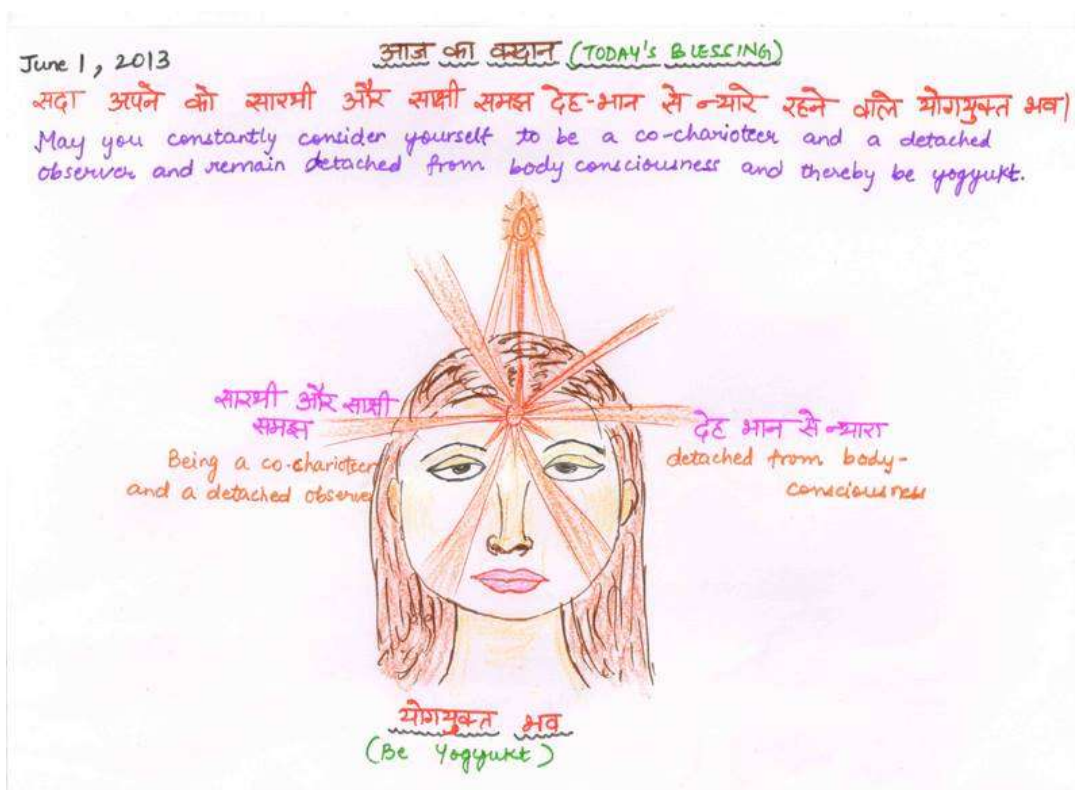 June 1, 2013
आज का वरदान (TODAY'S BLESSING)
सदा अपने को सारथी और साक्षी समझ देह-भान से न्यारे रहने वाले योगयुक्त भव।
May you constantly consider yourself to be a co-charioteer and a detached
observer and remain detached from body consciousness and thereby be yogyukt.
सारथी और साक्षी
समझ
Being a co-charioteer
and a detached observer
देह भान से न्यारा
detached from body-
consciousness
योगयुक्त भव
(Be Yogyukt)